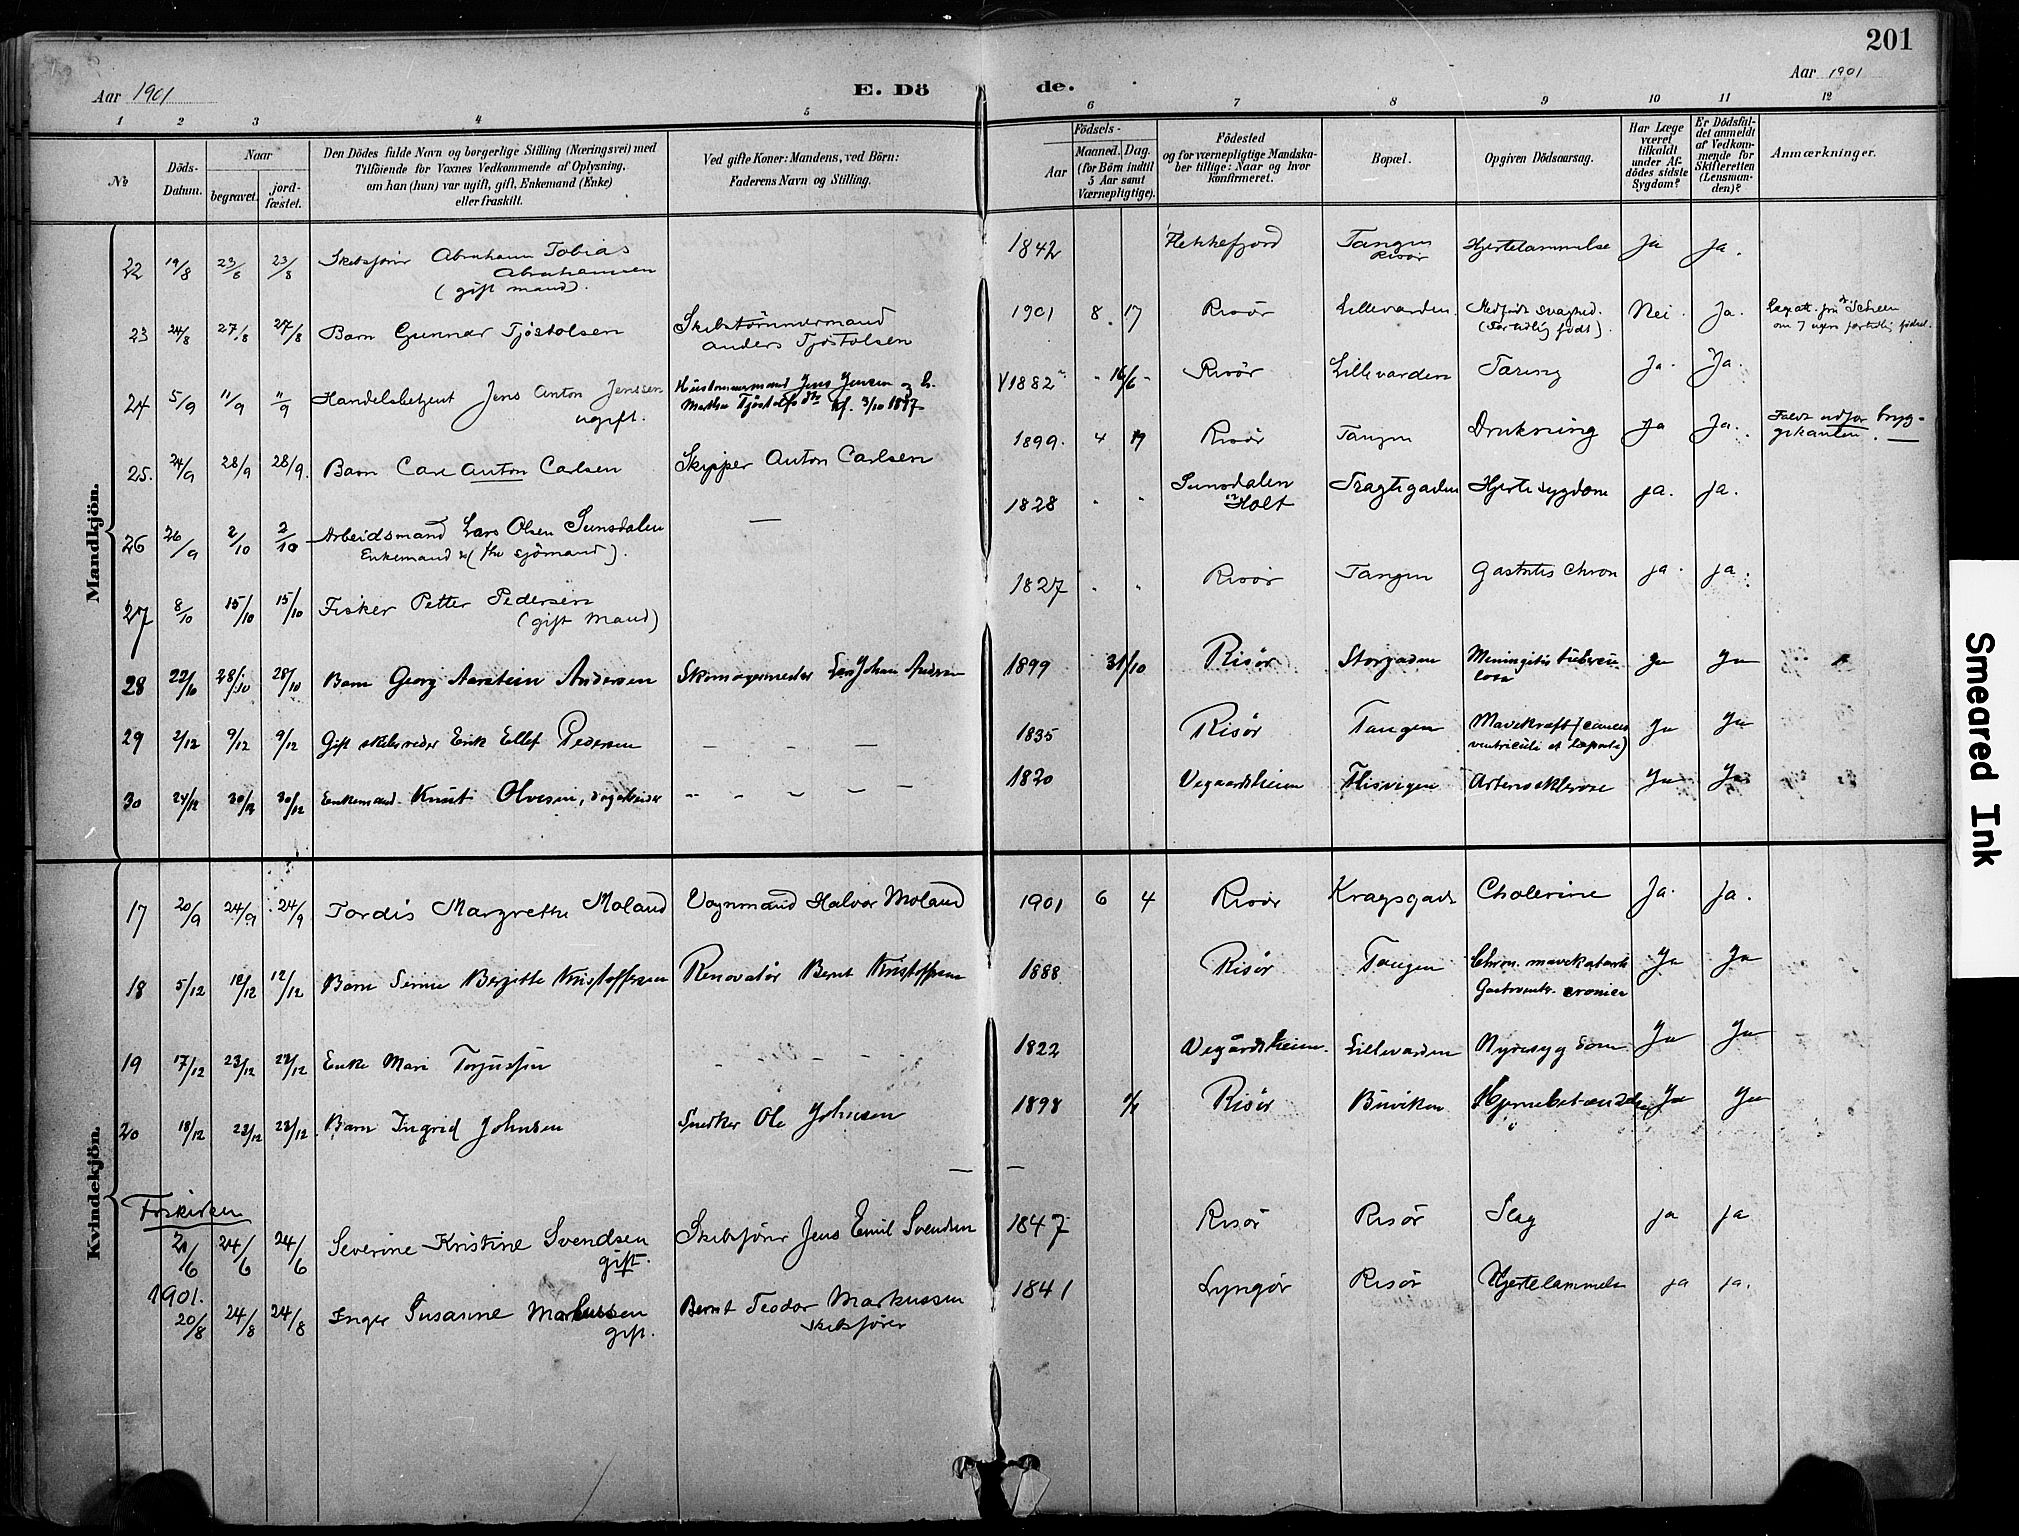 201
Aar 1901
E. Dö de.
Aar 1901
1 2 3 4 5 6 7 8 9 10 11 12
No
Döds-Datum.
Naar
begravet.
jord-fæstet.
Den Dödes fulde Navn og borgerlige Stilling (Næringsvei) med
Tilföiende for Voxnes Vedkommende af Oplysning,
om han (hun) var ugift, gift, Enkemand (Enke)
eller fraskilt.
Ved gifte Koner: Mandens, ved Börn:
Faderens Navn og Stilling.
Födsels-
Aar
Maaned. Dag.
(for Börn indtil
5 Aar samt
Værnepligtige).
Födested
og for værnepligtige Mandska-
ber tillige: Naar og hvor
konfirmeret.
Bopæl.
Opgiven Dödsaarsag.
Har Læge
været
tilkaldt
under Af-
dödes sidste
Sygdom?
Er Dödsfal-
det anmeldt
af Vedkom-
mende for
Skifteretten
(Lensman-
den)?
Anmærkninger.
Mandkjön.
22 19/8 23/8 23/8 Skibsfører Abraham Tobias
Abrahamsen
(gift mand).
1842 Flekkefjord Tangen
Risør
Hjertelammelse Ja Ja.
23 24/8 27/8 27/8 Barn Gunnar Tjøstolsen
Skibstømmermand
Anders Tjøstolsen
1901 8 17 Risør Lillevarden Medfødt svaghed.
(for tidlig født).
Nei. Ja.
24 5/9 11/9 11/9 Handelsbetjent Jens Anton Jenssen
ugift.
1882 16/6 Risør Lillevarden Tæring Ja. Ja.
25. 24/9 28/9 28/9. Barn Carl Anton Carlsen Skipper Anton Carlsen
1899. 4 Risør Tangen Drukning Ja Ja. Faldt udfor bryg-
gekanten.
26 26/9 2/10 2/10 Arbeidsmand Lars Olsen Sunsdalen
Enkemand (fhv sjømand). —
1828 Sunsdalen
Holt
Tragtegaden Hjertesygdom ja. ja.
27 8/10 15/10 15/10 Fisker Petter Pedersen
(gift Mand)
1827 Risør Tangen Gastritis Chron ja. ja.
28 22/10 28/10 28/10 Barn Georg Aarstein Andersen Skomagermester Johan Andersen
1899 31/10 Risør Storgaden Meningitis tubercu-
losa
Ja Ja
29 2/12 9/12 9/12 Gift skibsreder Erik Ellef Pedersen — — —
1835 Risør Tangen Mavekræft (cancer
ventriculi et hepatis)
Ja Ja
30 24/12 30/12 30/12 Enkemand Knut Olvesen, dagarbeider — — — — —
1820 Vegaardsheien Flisvigen Arteriosklerose Ja Ja
Kvindekjön.
17 20/9 24/9 24/9 Tordis Margrethe Moland Vognmand Halvor Moland
1901 6 4 Risør Kragsgade Cholerine Ja. Ja.
18 5/12 12/12 12/12 Barn Bergitte Kristoffersen Renovatør Bernt Kristoffersen
1888 Risør Tangen Chron. mavekatarh
Gastroenter. cronica
Ja Ja
19 17/12 23/12 23/12 Enke Mari Torjussen
1822 Vegårdsheien. Lillevarden Nyresygdom. Ja Ja
20 18/12 23/12 23/12 Barn Ingrid Johnsen Snedker Ole Johnsen
1898 Risør Buviken Hjernebetændelse Ja Ja
— —
Frikirken
21/6 24/6 24/6 Severine Kristine Svendsen
gift.
Skibsfører Jens Emil Svendsen
1847 Risør Risør Slag ja ja
1901.
20/8 24/8 24/8 Inger Susanne Markussen
gift.
Bernt Teodor Markussen
skibsfører
1841 Lyngør Risør Hjertelammelse ja ja.
Smeared Ink